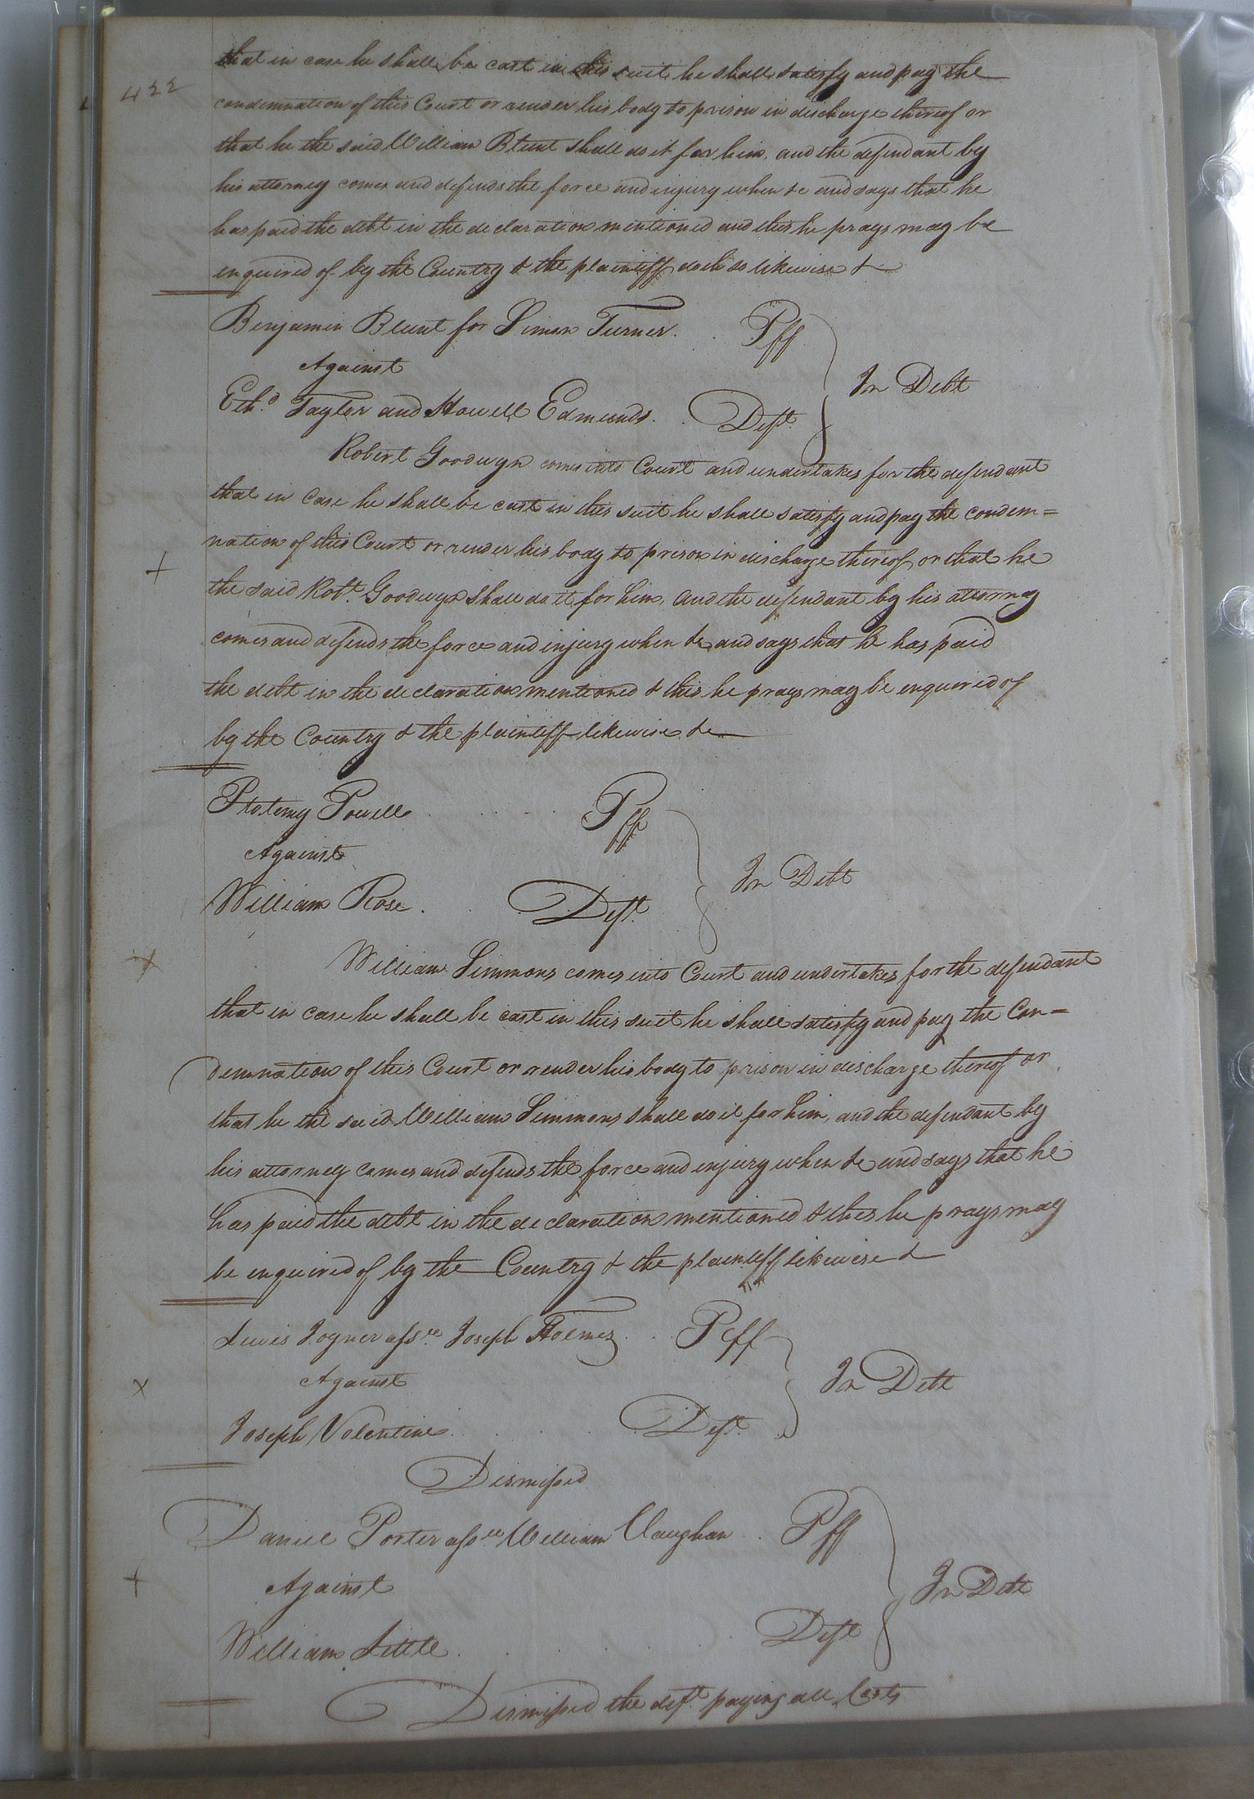 422
that in case he shall be cast in this suit he shall satisfy and pay the
condemnation of this Court or render his body to prison in discharge thereof or
that he the said William Blunt shall do it for him, and the defendant by
his attorney comes and defends the force and injury when &c and says that he
has paid the debt in the declaration mentioned and this he prays may be
enquired of by the Country & the plaintiff doth so likewise &
Benjamin Blunt for Simon Turner. Pff
Against
In Debt
Eth.d Taylor and Howell Edmunds. Deft.
Robert Goodwyn comes into Court and undertakes for the defendant
that in case he shall be cast in this suit he shall satisfy and pay the condem=
nation of this Court or render his body to prison in discharge thereof or that he
the said Robt. Goodwyn shall do it for him, and the defendant by his attorney
comes and defends the force and injury when &c and says that he has paid
the debt in the declaration mentioned & this he prays may be enquired of
by the Country & the plaintiff likewise &c
Ptolemy Powell Pff
Against
In Debt
William Rose. Deft.
William Simmons comes into Court and undertakes for the defendant
that in case he shall be cast in this suit he shall satisfy and pay the Con=
demnation of this Court or render his body to prison in discharge thereof or
that he the said William Simmons shall do it for him, and the defendant by
his attorney comes and defends the force and injury when &c and says that he
has paid the debt in the declaration mentioned & this he prays may
be enquired of by the Country & the plaintiff likewise &
Lewis Joyner assee Joseph Holmes Plff
Against
In Debt
Joseph Valentine Deft.
Dismissed
Daniel Porter assee William Vaughan Pff
Against
In Debt
William Little. Deft
Dismissed the deft. paying all Costs